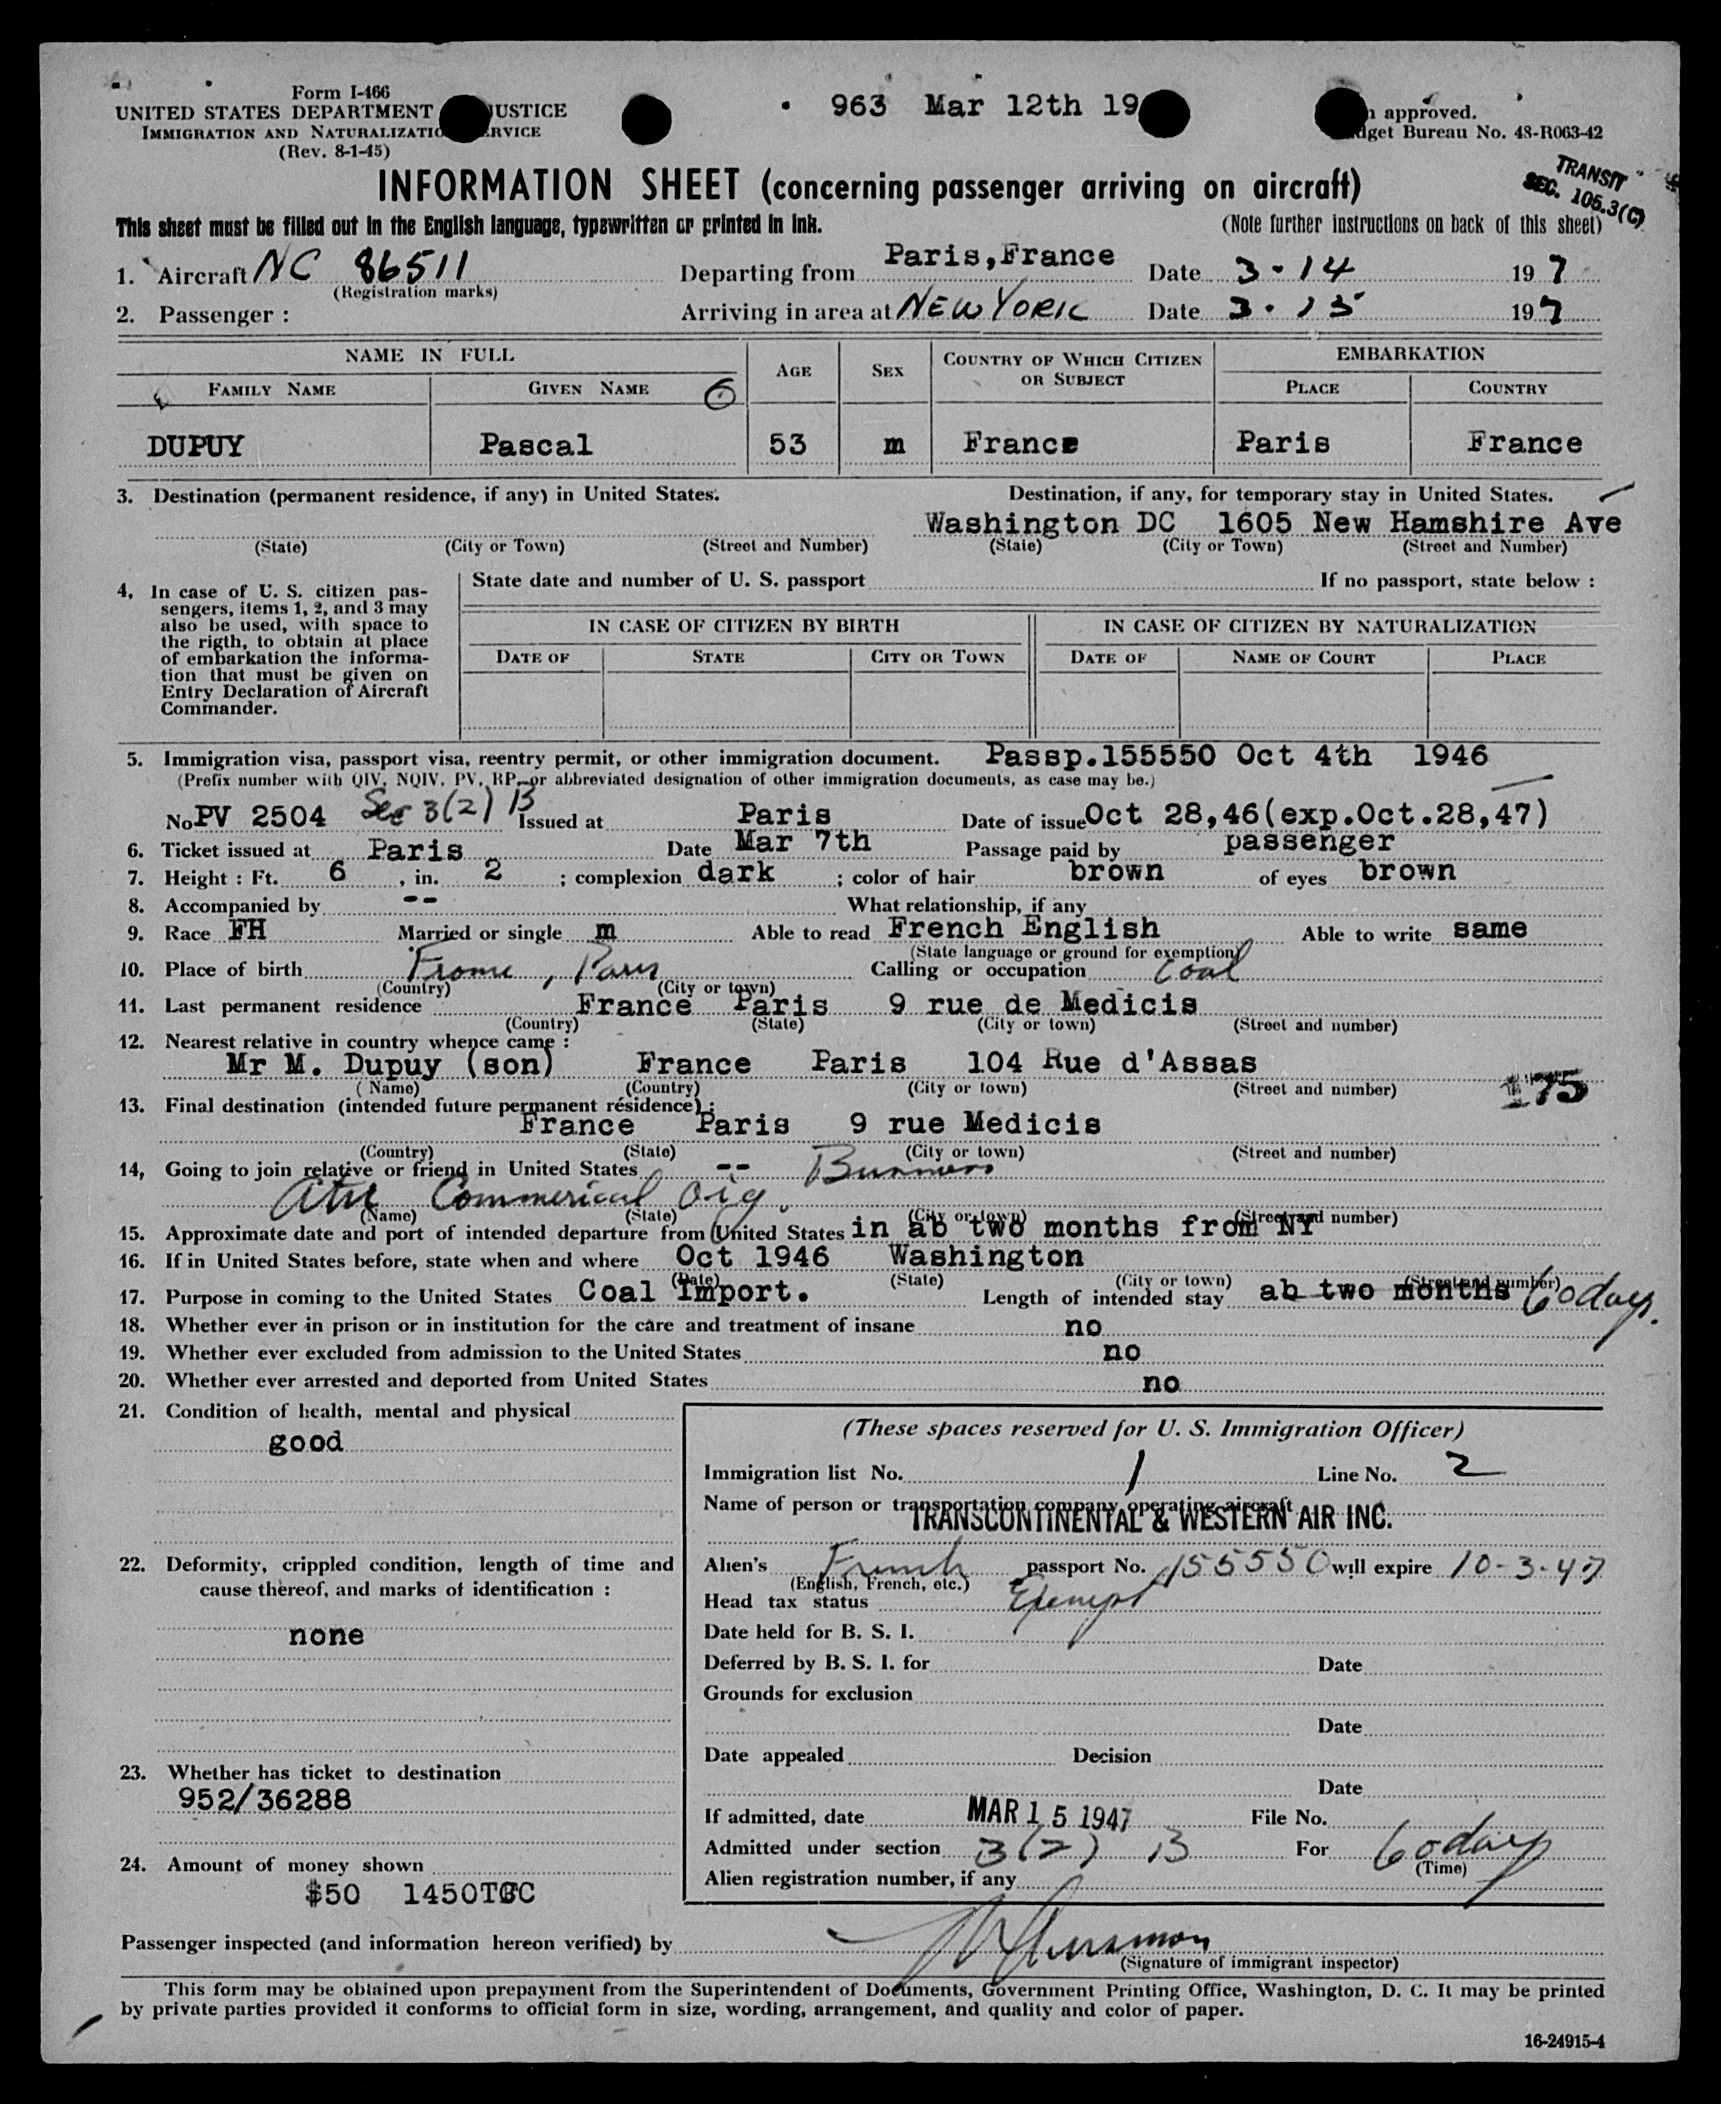 Form I-466
UNITED STATES DEPARTMENT JUSTICE
IMMIGRATION AND NATURALIZATIO ERVICE
(Rev. 8-1-45)
963 Mar 12th 19
approved.
dget Bureau No. 43-R063-42
TRANSIT
SEC. 105.3(C)
INFORMATION SHEET (concerning passenger arriving on aircraft)
This sheet must be filled out in the English language, typewritten or printed in ink. (Note further instructions on back of this sheet)
1. Aircraft NC 86511 Departing from Paris,France Date 3-14 19 7
(Registration marks)
2. Passenger : Arriving in area at NEW YORK Date 3-15 19 7
NAME IN FULL AGE SEX COUNTRY OF WHICH CITIZEN OR SUBJECT EMBARKATION
FAMILY NAME GIVEN NAME 6 PLACE COUNTRY
DUPUY Pascal 53 m France Paris France
3. Destination (permanent residence, if any) in United States. Destination, if any, for temporary stay in United States.
Washington DC 1605 New Hamshire Ave
(State) (City or Town) (Street and Number) (State) (City or Town) (Street and Number)
4, In case of U. S. citizen pas-
sengers, items 1, 2, and 3 may
also be used, with space to
the rigth, to obtain at place
of embarkation the informa-
tion that must be given on
Entry Declaration of Aircraft
Commander.
State date and number of U. S. passport If no passport, state below :
IN CASE OF CITIZEN BY BIRTH IN CASE OF CITIZEN BY NATURALIZATION
DATE OF STATE CITY OR TOWN DATE OF NAME OF COURT PLACE
5. Immigration visa, passport visa, reentry permit, or other immigration document. Passp.155550 Oct 4th 1946
(Prefix number with QIV, NQIV, PV, RP, or abbreviated designation of other immigration documents, as case may be.)
No PV 2504 Sec 3(2) B Issued at Paris Date of issue Oct 28,46(exp.Oct.28,47)
6. Ticket issued at Paris Date Mar 7th Passage paid by passenger
7. Height : Ft. 6 , in. 2 ; complexion dark ; color of hair brown of eyes brown
8. Accompanied by -- What relationship, if any
9. Race FH Married or single m Able to read French English Able to write same
(State language or ground for exemption)
10. Place of birth France, Paris Calling or occupation Coal
(Country) (City or town)
11. Last permanent residence France Paris 9 rue de Medicis
(Country) (State) (City or town) (Street and number)
12. Nearest relative in country whence came :
Mr M. Dupuy (son) France Paris 104 Rue d'Assas
( Name) (Country) (City or town) (Street and number)
175
13. Final destination (intended future permanent résidence) :
France Paris 9 rue Medicis
(Country) (State) (City or town) (Street and number)
14, Going to join relative or friend in United States -- Business
Commerical
(Name) (State) (City or town) (Street and number)
15. Approximate date and port of intended departure from United States in ab two months from NY
16. If in United States before, state when and where Oct 1946 Washington
(Date) (State) (City or town) (Street and number)
17. Purpose in coming to the United States Coal Import. Length of intended stay ab two months 60 days.
18. Whether ever in prison or in institution for the care and treatment of insane no
19. Whether ever excluded from admission to the United States no
20. Whether ever arrested and deported from United States no
21. Condition of health, mental and physical
good
22. Deformity, crippled condition, length of time and
cause thereof, and marks of identification :
none
23. Whether has ticket to destination
952/36288
24. Amount of money shown
$50 1450
(These spaces reserved for U. S. Immigration Officer)
Immigration list No. 1 Line No. 2
Name of person or transportation company operating aircraft
TRANSCONTINENTAL & WESTERN AIR INC.
Alien's French passport No. 155550 will expire 10-3-47
(English, French, etc.)
Head tax status Exempt
Date held for B. S. I.
Deferred by B. S. I. for Date
Grounds for exclusion
Date
Date appealed Decision
Date
If admitted, date MAR 15 1947 File No.
Admitted under section 3(2) B For 60 days
(Time)
Alien registration number, if any
Passenger inspected (and information hereon verified) by
(Signature of immigrant inspector)
This form may be obtained upon prepayment from the Superintendent of Documents, Government Printing Office, Washington, D. C. It may be printed
by private parties provided it conforms to official form in size, wording, arrangement, and quality and color of paper.
16-24915-4